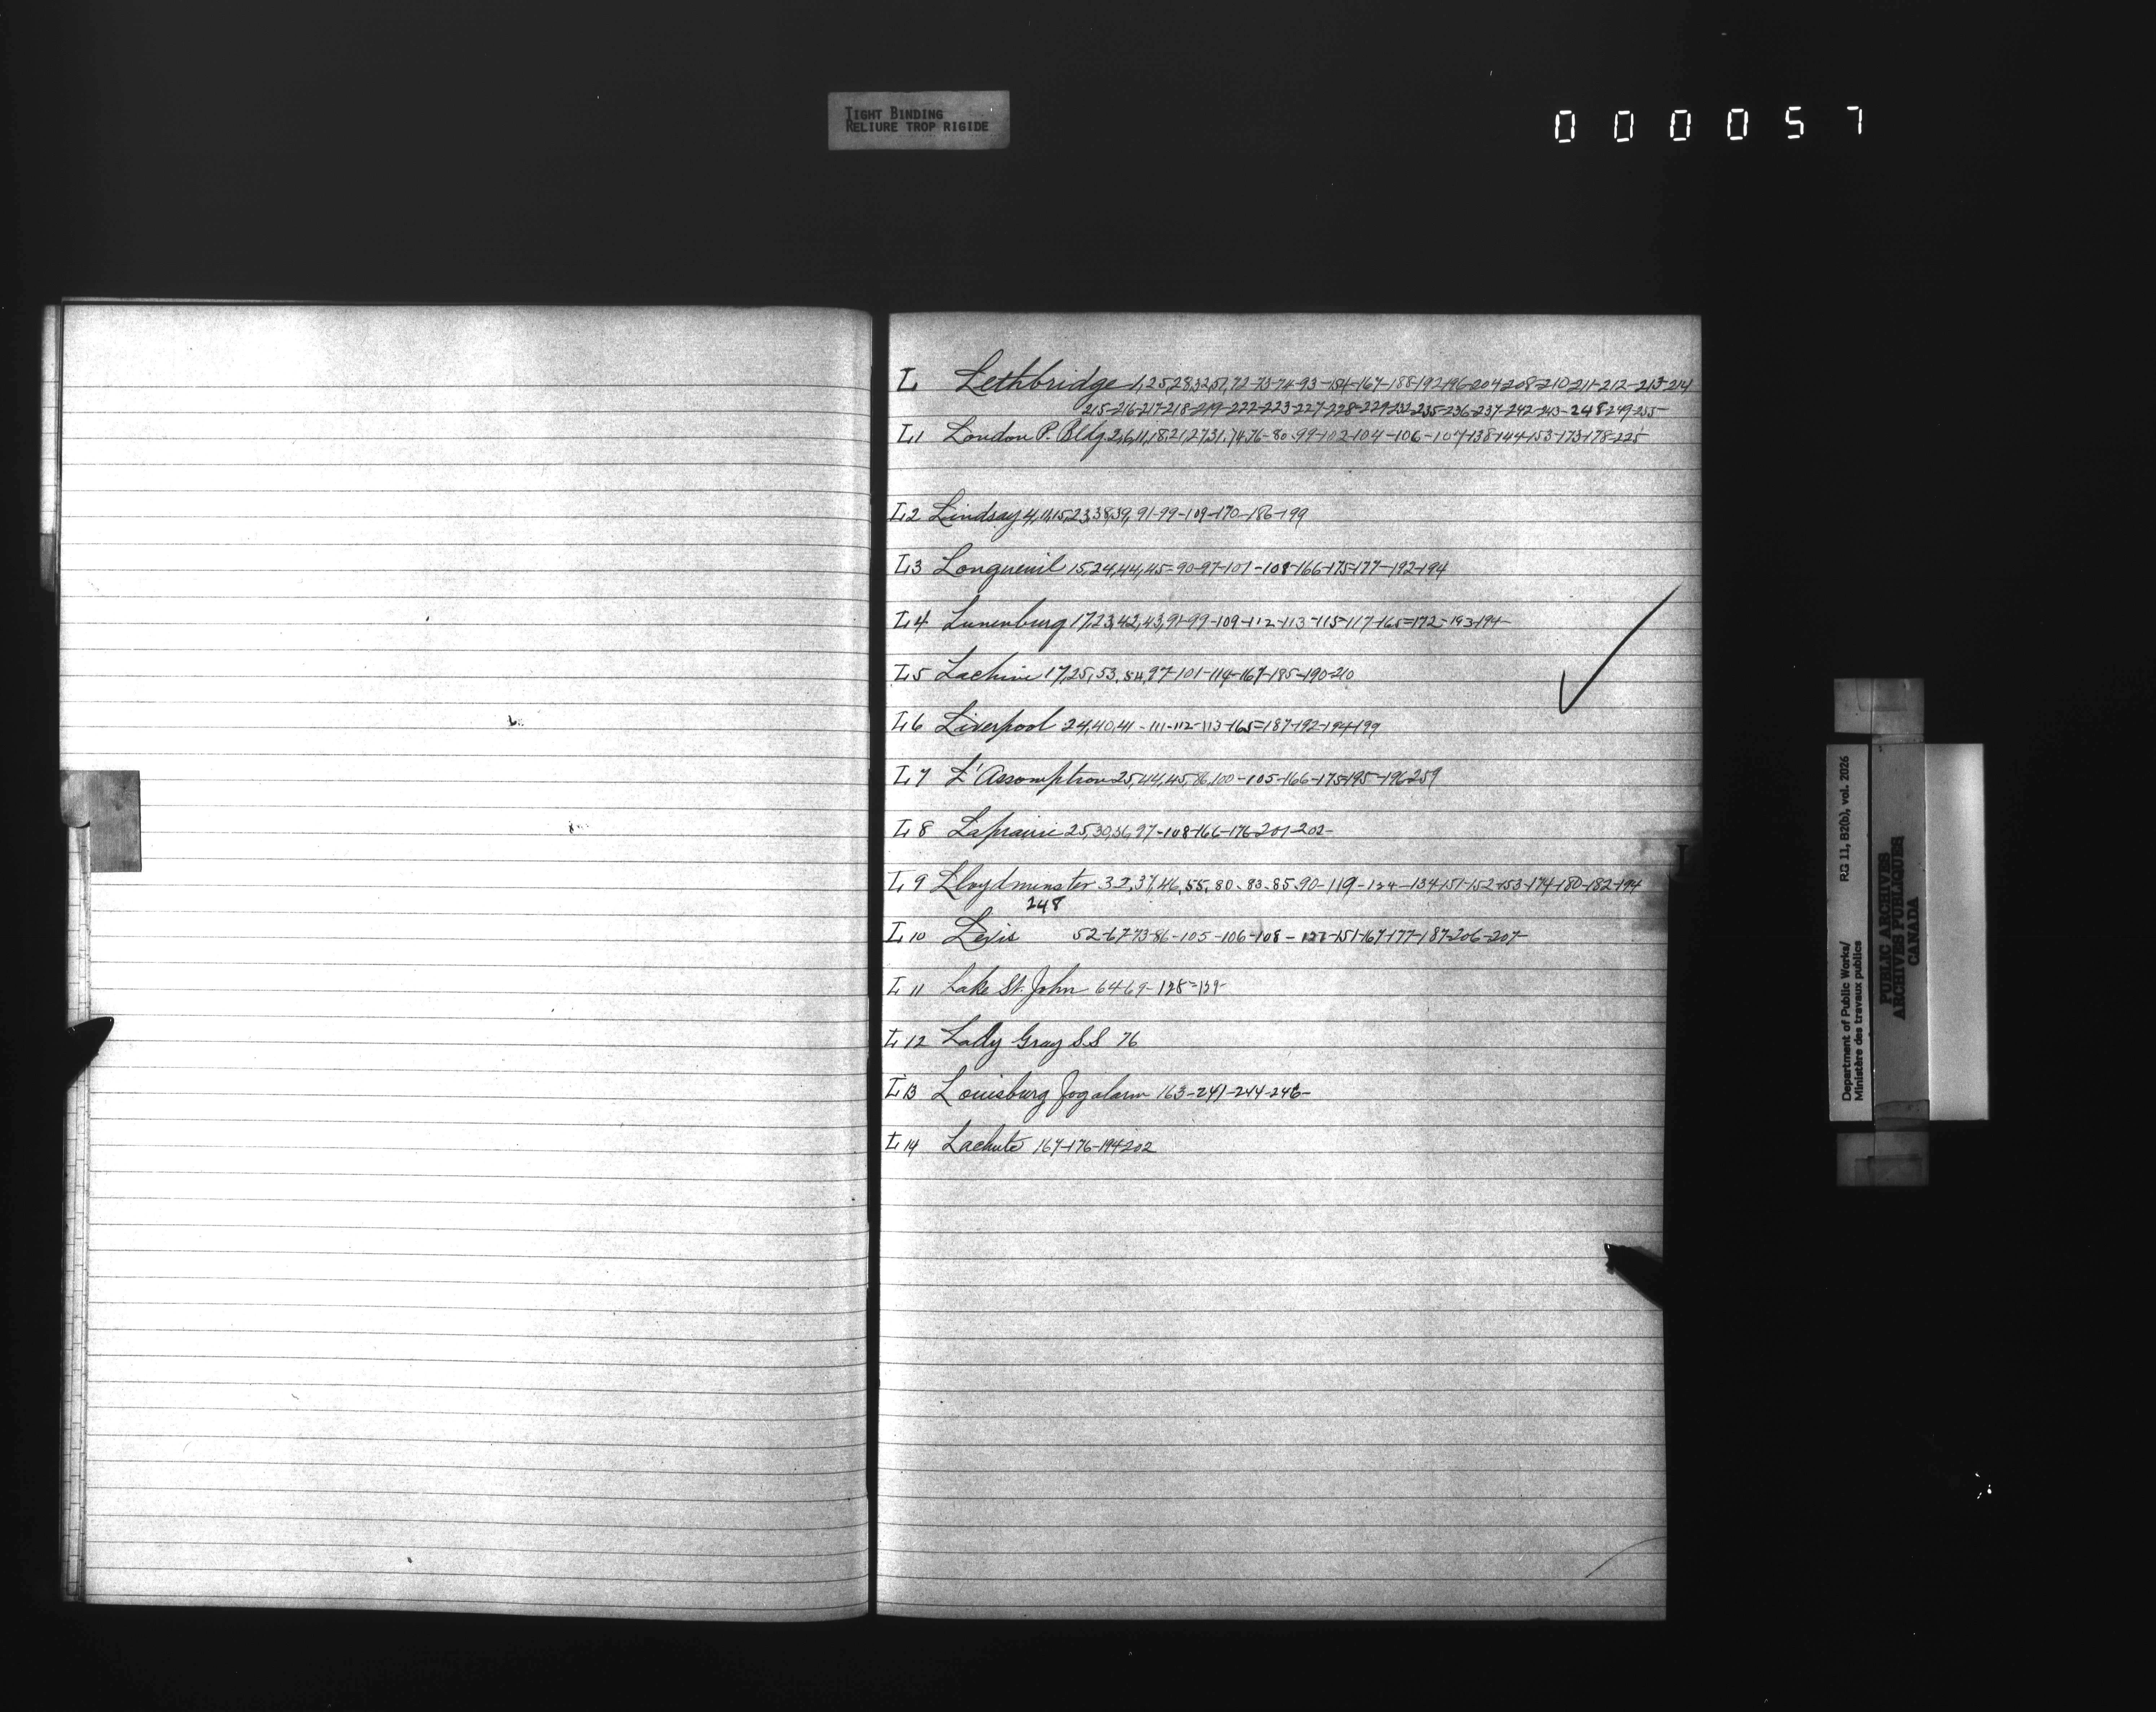 TIGHT BINDING
RELIURE TROP RIGIDE
000057
L Lethbridge 1,25,28,32,51,72-73-74-93-154-167-188-192-196-204-208-210-211-212-213-214
215-216-217-218-219-222-223-227-228-229-232-235-236-237-242-243-248-249-255-
L1 London P. Bldg 2,6,11,18,21,27,31,74,76-80-99-102-104-106-107-138-144-153-173-178-225
L2 Lindsay 4,11,15,23,38,39,91-99-109-170-186-199
L3 Longueuil 15,24,44,45-90-97-101-108-166-175-177-192-194
L4 Lunenburg 17,23,42,43,91-99-109-112-113-115-117-165-172-193-194-
L5 Lachine 17,25,53,84,97-101-114-167-185-190-210
L6 Liverpool 24,40,41-111-112-113-165-187-192-194-199
L7 L'Assomption 25,44,45,76,100-105-166-175-195-196-259
L8 Laprairie 25,30,36,97-108-166-176-201-202-
L9 Lloydminster 32,37,46,55,80-83-85-90-119-124-134-151-152-153-174-180-182-194
248
L10 Levis 52-67-73-86-105-106-108-127-151-167-177-187-206-207-
L11 Lake St. John 64-69-128-129-
L12 Lady Gray S.S 76
L13 Louisburg Fog alarm 163-241-244-246-
L14 Lachute 167-176-194-202
L
Department of Public Works/ RG 11, B2(b), vol. 2026
Ministère des travaux publics
PUBLIC ARCHIVES
ARCHIVES PUBLIQUES
CANADA